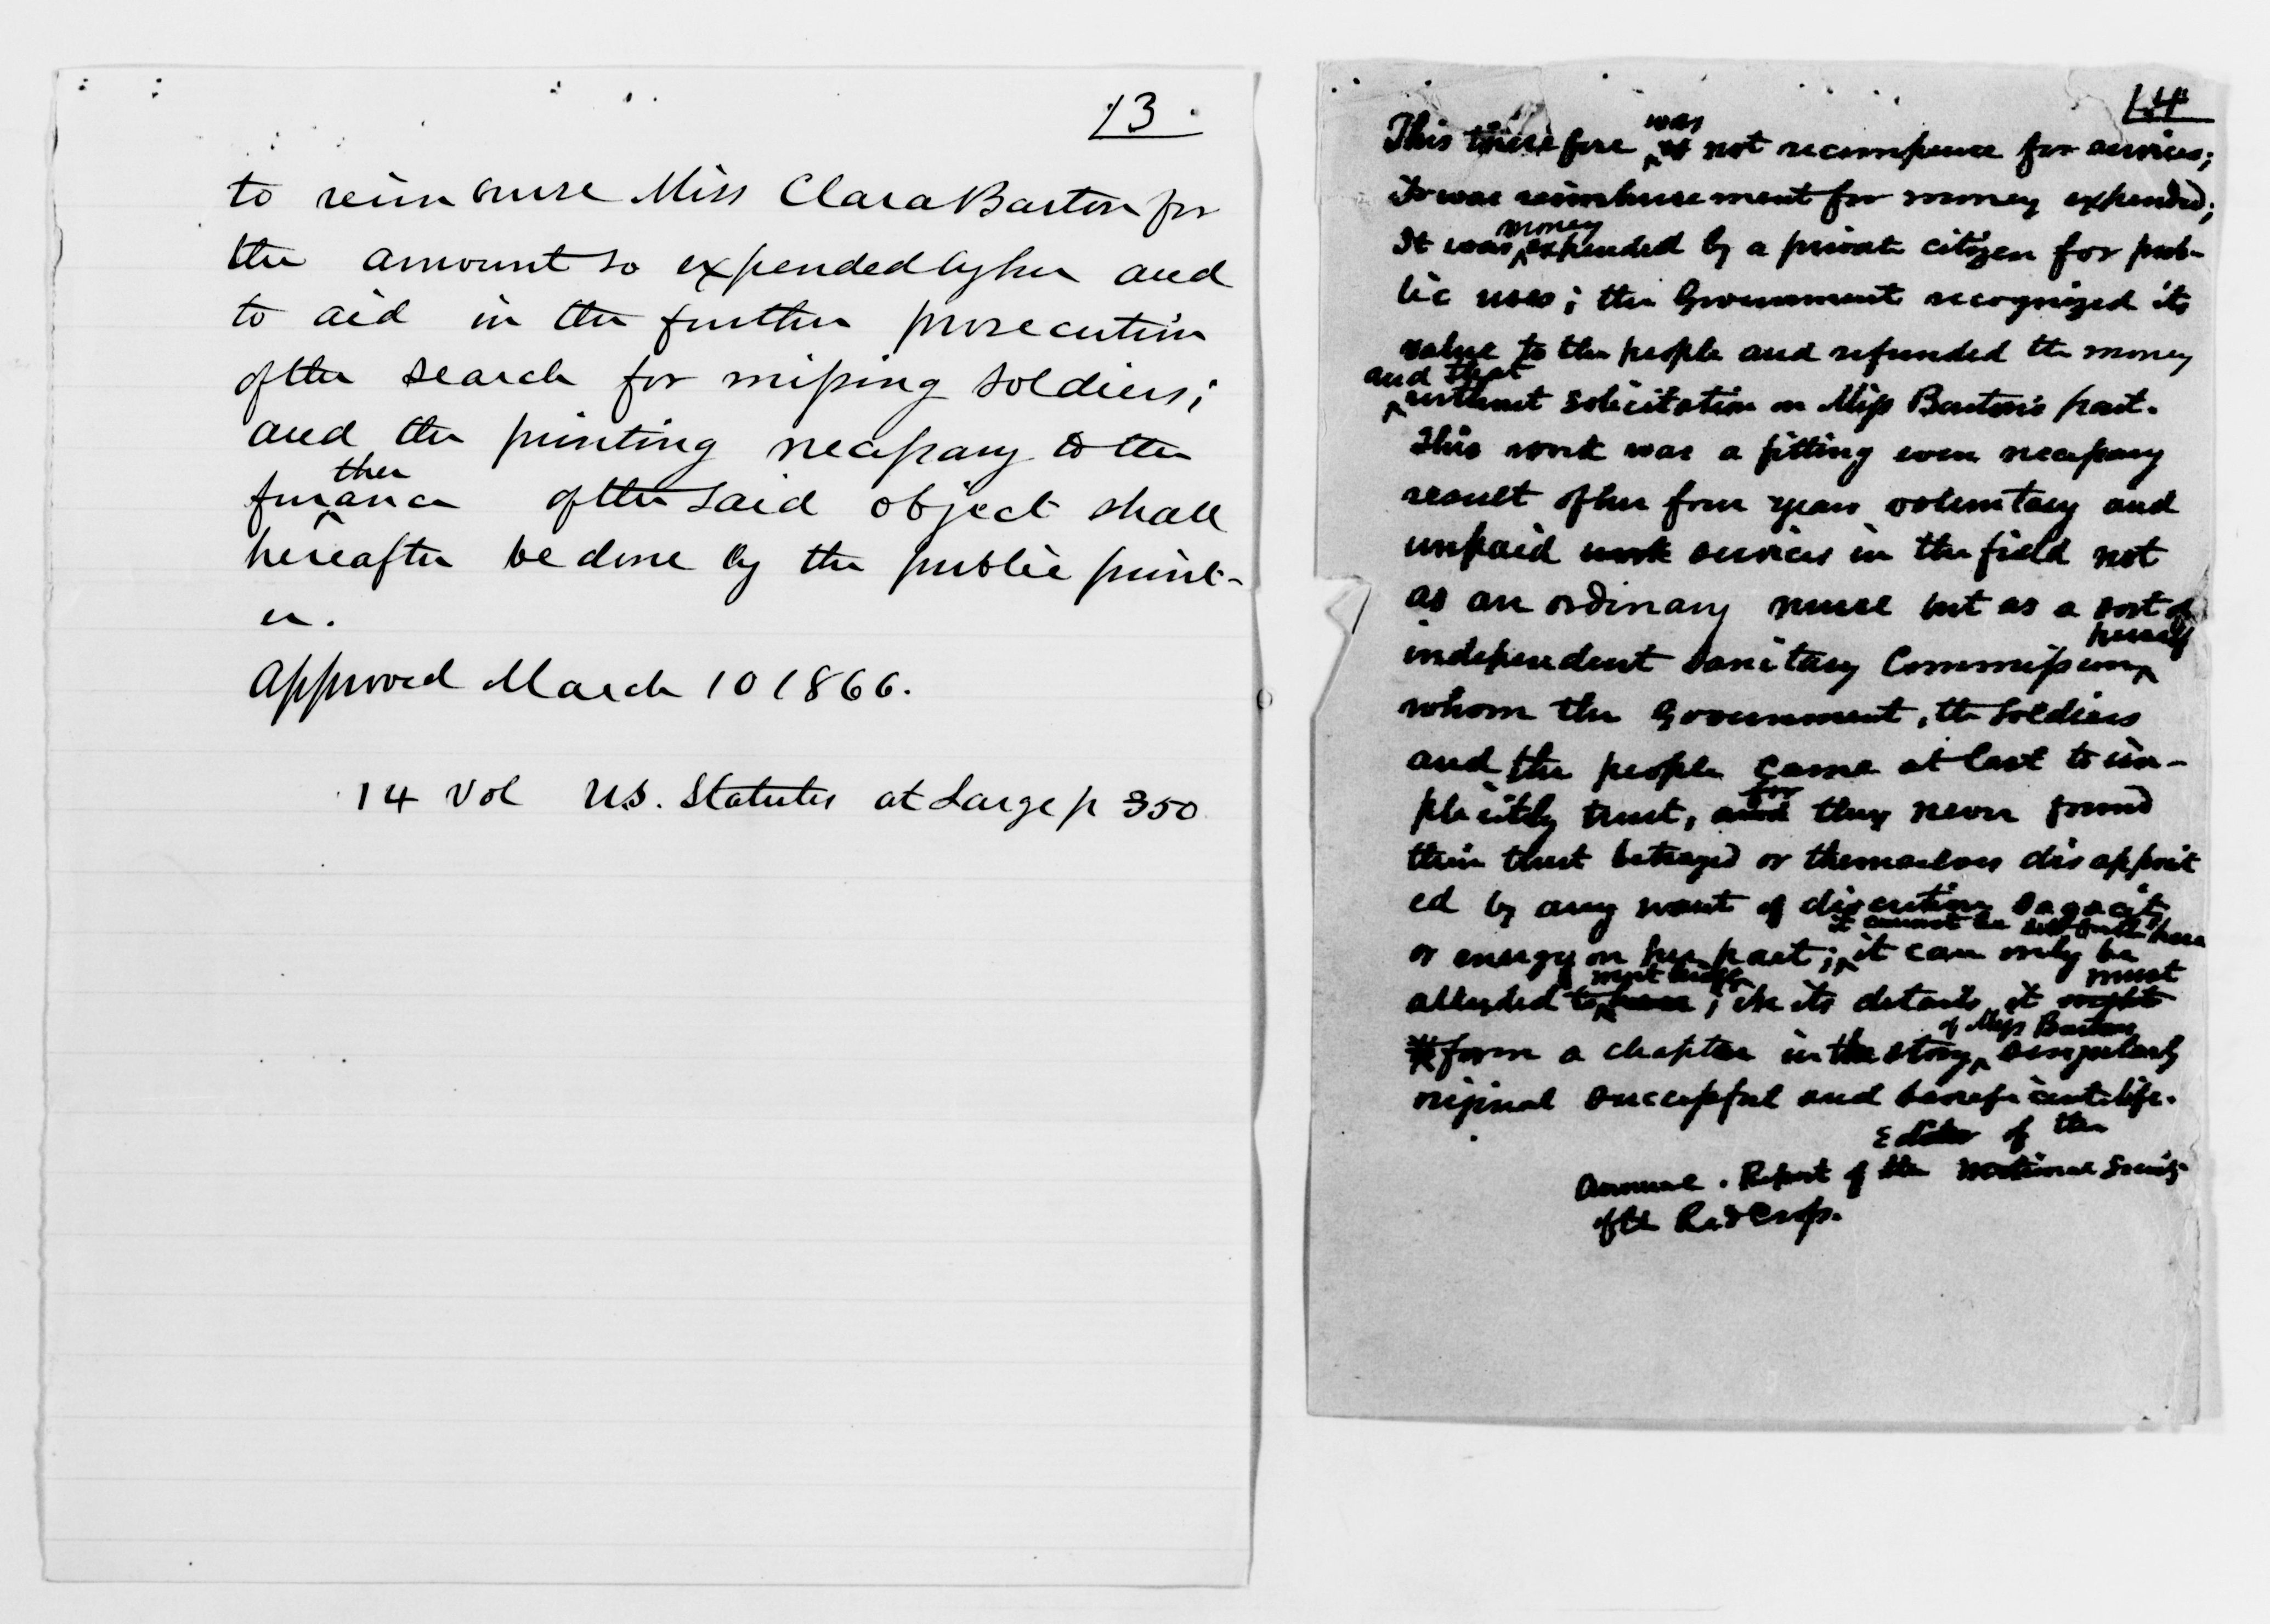 13.
to reimburse Miss Clara Barton for
the amount so expended by her and
to aid in the further prosecution
of the search for missing soldiers;
and the printing necessary to the
ther
furance of the said object shall
hereafter be done by the public print-
er.
Approved March 10 1866.
14 Vol U.S. Statutes at Large p 350
14
was
This therefore is not recompence for services;
it was reimbursement for money expended;
money
It was expended by a private citizen for pub-
lic uses; the Government recognized its
value to the people and refunded the money
and that
without solicitation on Miss Barton's part.
This work was a fitting even necessary
result of her four years voluntary and
unpaid work services in the field not
as an ordinary nurse but as a sort of
herself
independent Sanitary Commission
whom the Government, the Soldiers
and the people came at last to im-
for
plicitly trust, and they never found
their trust betrayed or themselves disappoint
ed by any want of discretion sagacity
it cannot be set forth here
or energy on her part; it can only be
most briefly must
alluded to here; in its details it might
of Miss Bartons
form a chapter in the story singularly
original successful and beneficent life.
Editor of the
Annual Report of the National Society
of the Red Cross.